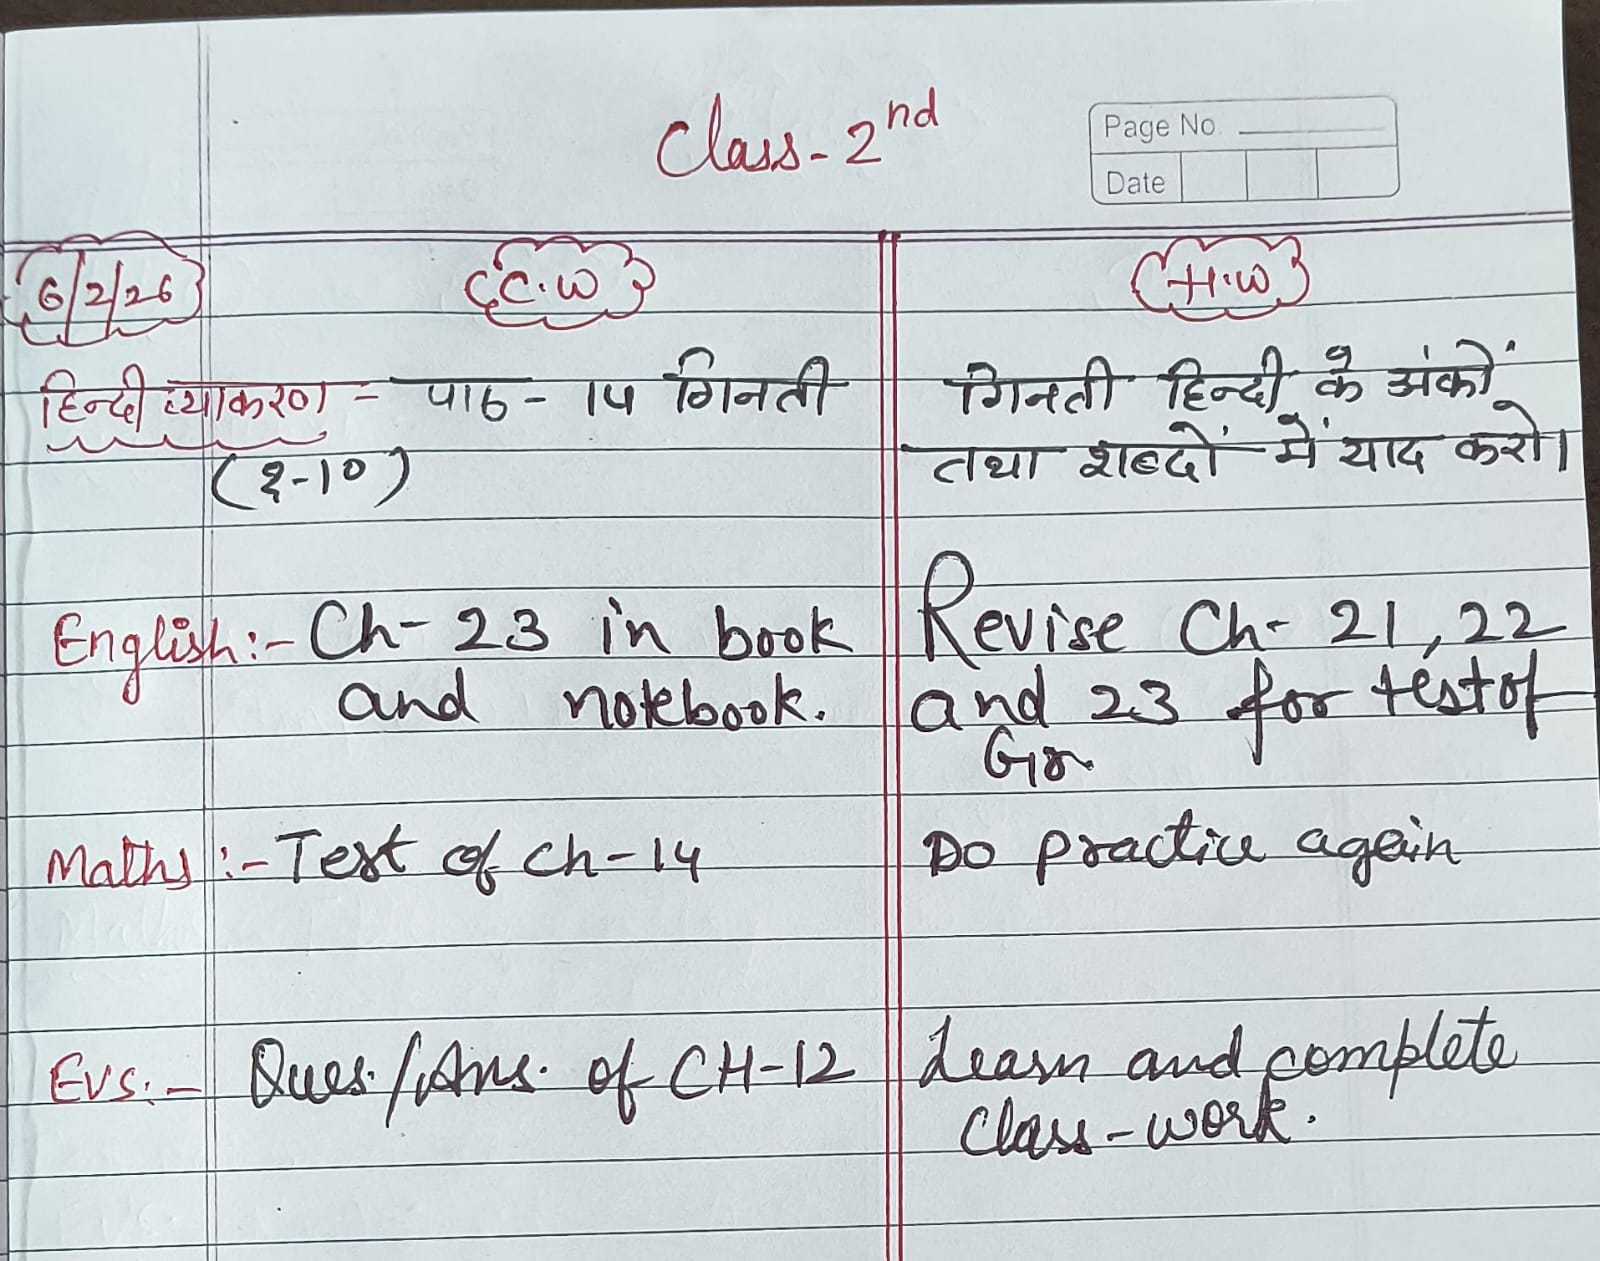 Class-2nd
Page No.
Date
6/2/26 C.W H.W
हिन्दी व्याकरण - पाठ- 14 गिनती
(१-10)
गिनती हिन्दी के अंकों
तथा शब्दों में याद करो।
English:- Ch- 23 in book
and notebook.
Revise Ch- 21, 22
and 23 for test of
Gr.
Maths:- Test of ch-14
Do practice again
Evs:- Ques./Ans. of CH-12
Learn and complete
class-work.